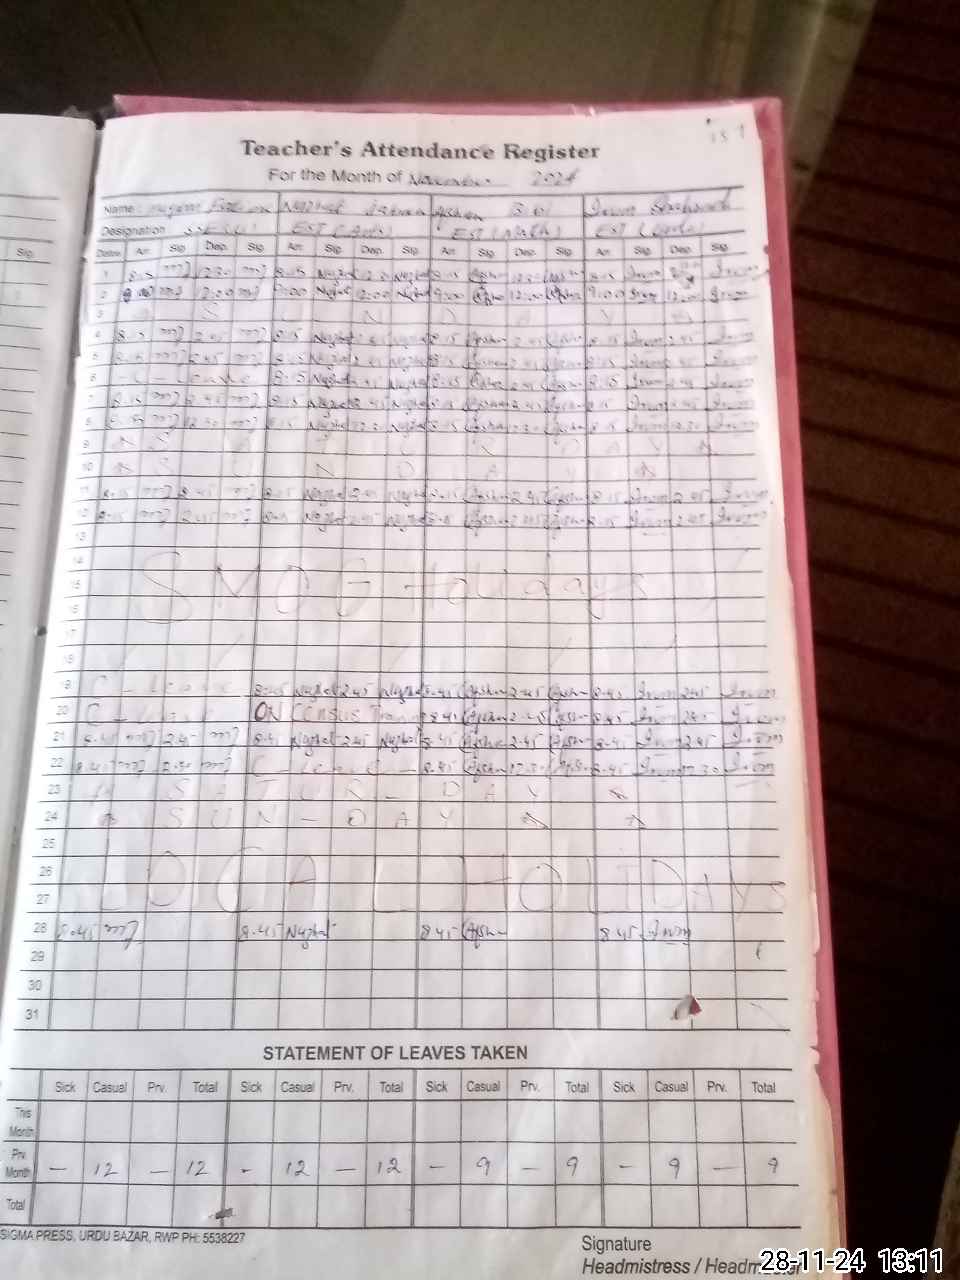 157
Teacher's Attendance Register
For the Month of November 2024
Name: Nuzhat Afshan Bibi Irum
Designation EST (Arts) EST (Math) EST (
Dates Arr. Sig. Dep. Sig. Arr. Sig. Dep. Sig. Arr. Sig. Dep. Sig. Arr. Sig. Dep. Sig.
1 8.15 12.30 8.15 Nuzhat 12.30 Nuzhat 8.15 Afshan 12.30 Afshan 8.15 Irum Irum
2 9:00 12:00 9:00 Nuzhat 12:00 Nuzhat 9:00 Afshan 12:00 Afshan 9:00 Irum 12:00 Irum
3 S U N D A Y
4 8.15 2.45 8.15 Nuzhat 2.45 Nuzhat 8.15 Afshan 2.45 Afshan 8.15 Irum 2.45 Irum
5 8.15 2.45 8.15 Nuzhat 2.45 Nuzhat 8.15 Afshan 2.45 Afshan 8.15 Irum 2.45 Irum
6 C - Leave 8.15 Nuzhat 2.45 Nuzhat 8.15 Afshan 2.45 Afshan 8.15 Irum 2.45 Irum
7 8.15 2.45 8.15 Nuzhat 2.45 Nuzhat 8.15 Afshan 2.45 Afshan 8.15 Irum 2.45 Irum
8 8.15 12.30 8.15 Nuzhat 12.30 Nuzhat 8.15 Afshan 12.30 Afshan 8.15 Irum 12.30 Irum
9 S A T U R D A Y
10 S U N D A Y
11 8.15 2.45 8.15 Nuzhat 2.45 Nuzhat 8.15 Afshan 2.45 Afshan 8.15 Irum 2.45 Irum
12 8.15 2.45 8.15 Nuzhat 2.45 Nuzhat 8.15 Afshan 2.45 Afshan 8.15 Irum 2.45 Irum
13
14
15 SMOG Holidays
16
17
18
19 C - Leave 8.45 Nuzhat 2.45 Nuzhat 8.45 Afshan 2.45 Afshan 8.45 Irum 2.45 Irum
20 C - Leave ON Census Training 8.45 Afshan 2.45 Afshan 8.45 Irum 2.45 Irum
21 8.45 2.45 8.45 Nuzhat 2.45 Nuzhat 8.45 Afshan 2.45 Afshan 8.45 Irum 2.45 Irum
22 8.45 12.30 C - Leave - 8.45 Afshan 12.30 Afshan 8.45 Irum 12.30 Irum
23 S A T U R - D A Y
24 S U N - D A Y
25
26 LOCAL HOLIDAYS
27
28 8.45 8.45 Nuzhat 8.45 Afshan 8.45 Irum
29
30
31
STATEMENT OF LEAVES TAKEN
Sick Casual Prv. Total Sick Casual Prv. Total Sick Casual Prv. Total Sick Casual Prv. Total
This Month
Prv. Month — 12 — 12 - 12 — 12 — 9 — 9 — 9 — 9
Total
SIGMA PRESS, URDU BAZAR, RWP PH: 5538227
Signature
Headmistress / Headmaster
28-11-24 13:11